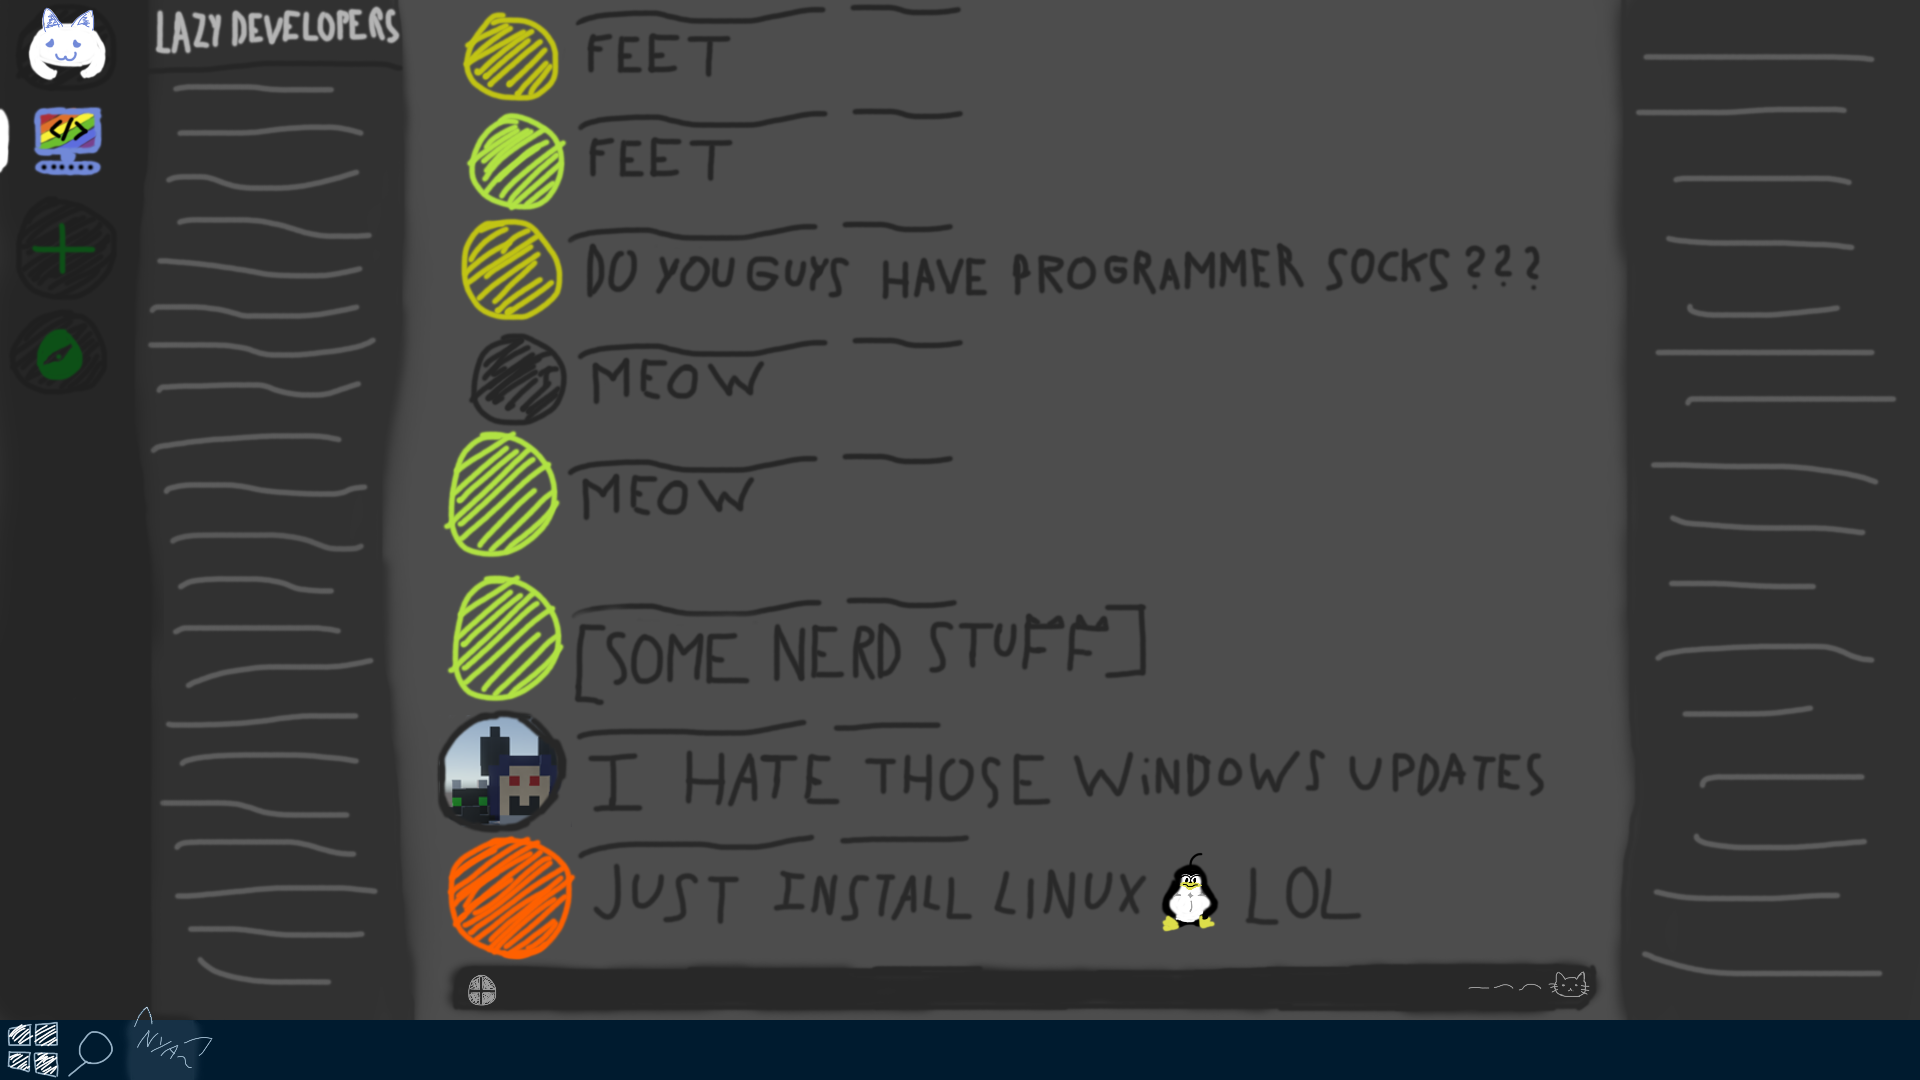 LAZY DEVELOPERS
</>
FEET
FEET
DO YOU GUYS HAVE PROGRAMMER SOCKS???
MEOW
MEOW
[SOME NERD STUFF]
I HATE THOSE WINDOWS UPDATES
JUST INSTALL LINUX LOL
NYA~